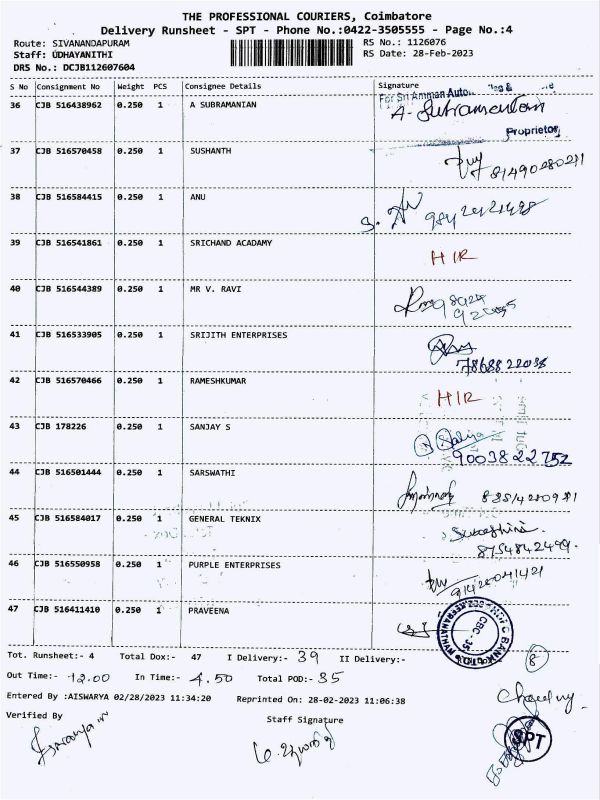 THE PROFESSIONAL COURIERS, Coimbatore
Delivery Runsheet - SPT - Phone No.:0422-3505555 - Page No.:4
Route: SIVANANDAPURAM RS No.: 1126076
Staff: UDHAYANITHI RS Date: 28-Feb-2023
DRS No.: DCJB112607604
S No Consignment No Weight PCS Consignee Details Signature
For Sri Amman Auto
36 CJB 516438962 0.250 1 A SUBRAMANIAN A. Subramaniam
Proprietor
37 CJB 516570458 0.250 1 SUSHANTH
38 CJB 516584415 0.250 1 ANU
39 CJB 516541861 0.250 1 SRICHAND ACADAMY HIR
40 CJB 516544389 0.250 1 MR V. RAVI
41 CJB 516533905 0.250 1 SRIJITH ENTERPRISES
7868822038
42 CJB 516570466 0.250 1 RAMESHKUMAR HIR
43 CJB 178226 0.250 1 SANJAY S
9003822752
44 CJB 516501444 0.250 1 SARSWATHI
45 CJB 516584017 0.250 1 GENERAL TEKNIX
8754842499.
46 CJB 516550958 0.250 1 PURPLE ENTERPRISES
47 CJB 516411410 0.250 1 PRAVEENA
CBC-35
Tot. Runsheet:- 4 Total Dox:- 47 I Delivery:- 39 II Delivery:- 8
Out Time:- 12.00 In Time:- 4.50 Total POD:- 35
Entered By :AISWARYA 02/28/2023 11:34:20 Reprinted On: 28-02-2023 11:06:38
Verified By Staff Signature
SPT